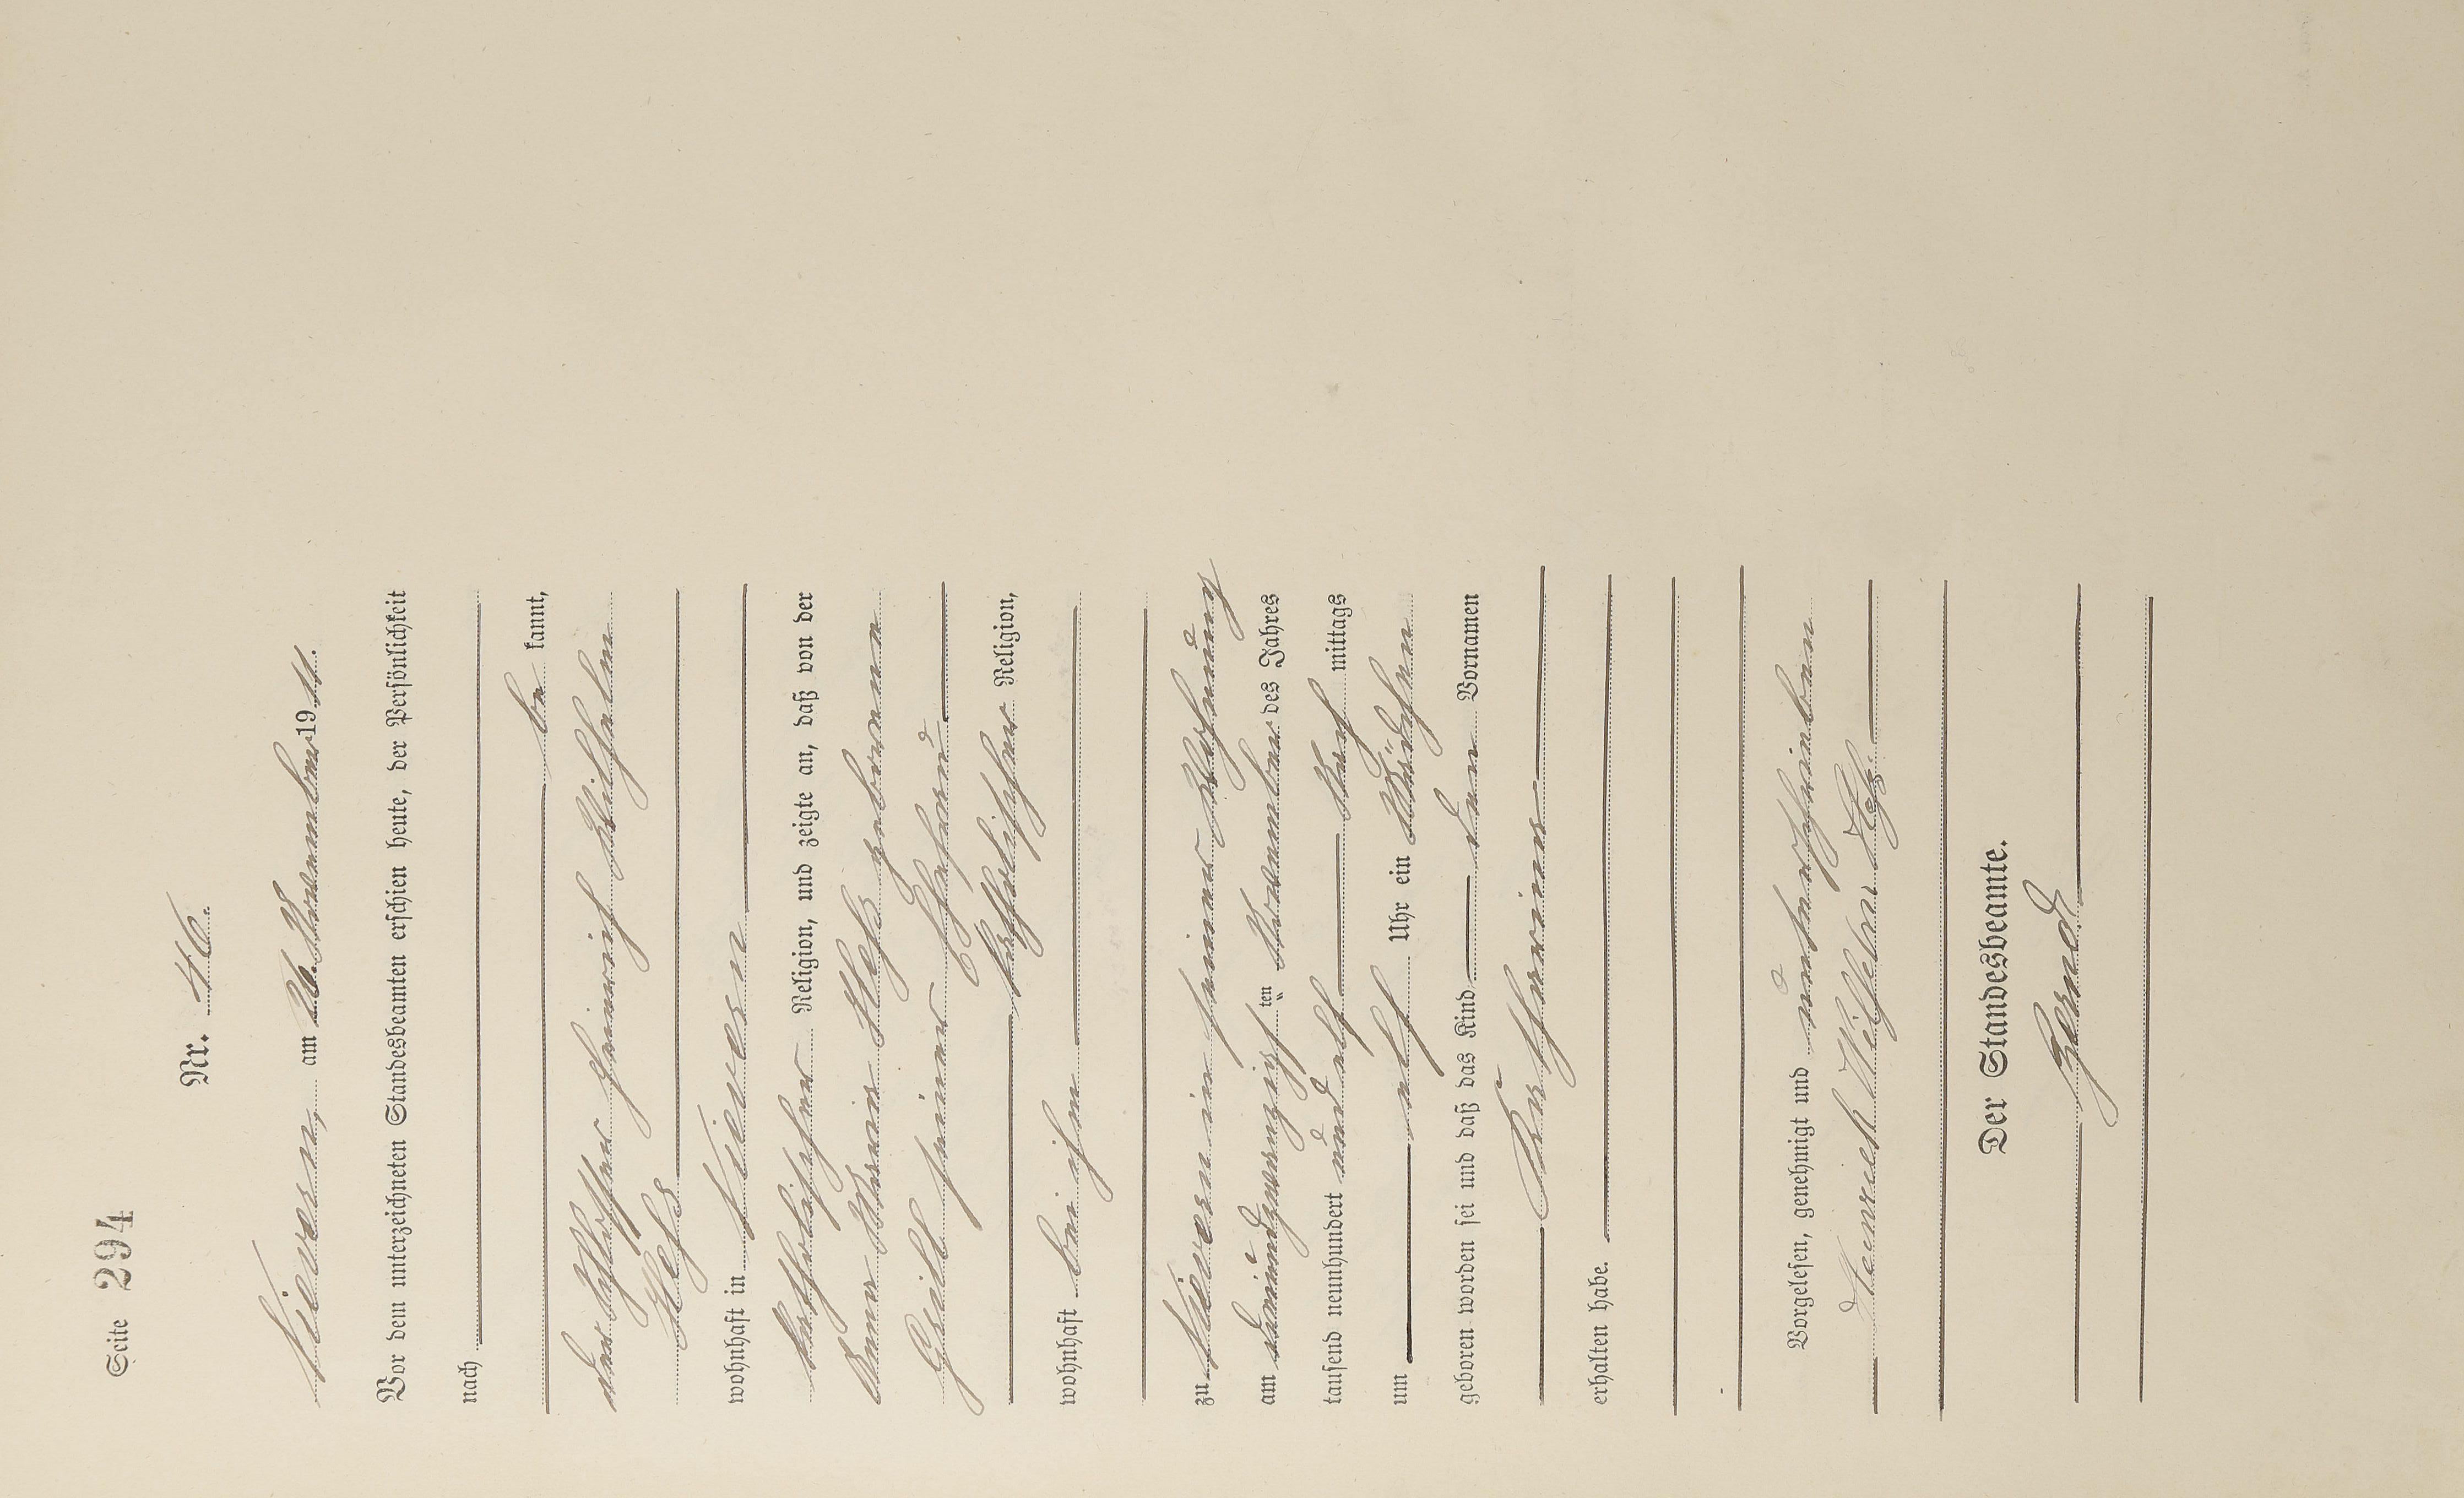 Seite 294
Nr. 46.
Nievern, am 26. November 1911.
Vor dem unterzeichneten Standesbeamten erschien heute, der Persönlichkeit
nach
be kannt,
der Schlosser Heinrich Wilhelm
Heß
wohnhaft in Nievern
katholischer Religion, und zeigte an, daß von der
Anna Maria Heß geborenen
Grill seiner Ehefrau
katholischer Religion,
wohnhaft bei ihm
zu Nievern in seiner Wohnung
am dreiundzwanzigsten November des Jahres
tausend neunhundert und elf Nach mittags
um elf Uhr ein Mädchen
geboren worden sei und daß das Kind den Vornamen
Katharina
erhalten habe.
Vorgelesen, genehmigt und unterschrieben
Heinrich Wilhelm Heß.
Der Standesbeamte.